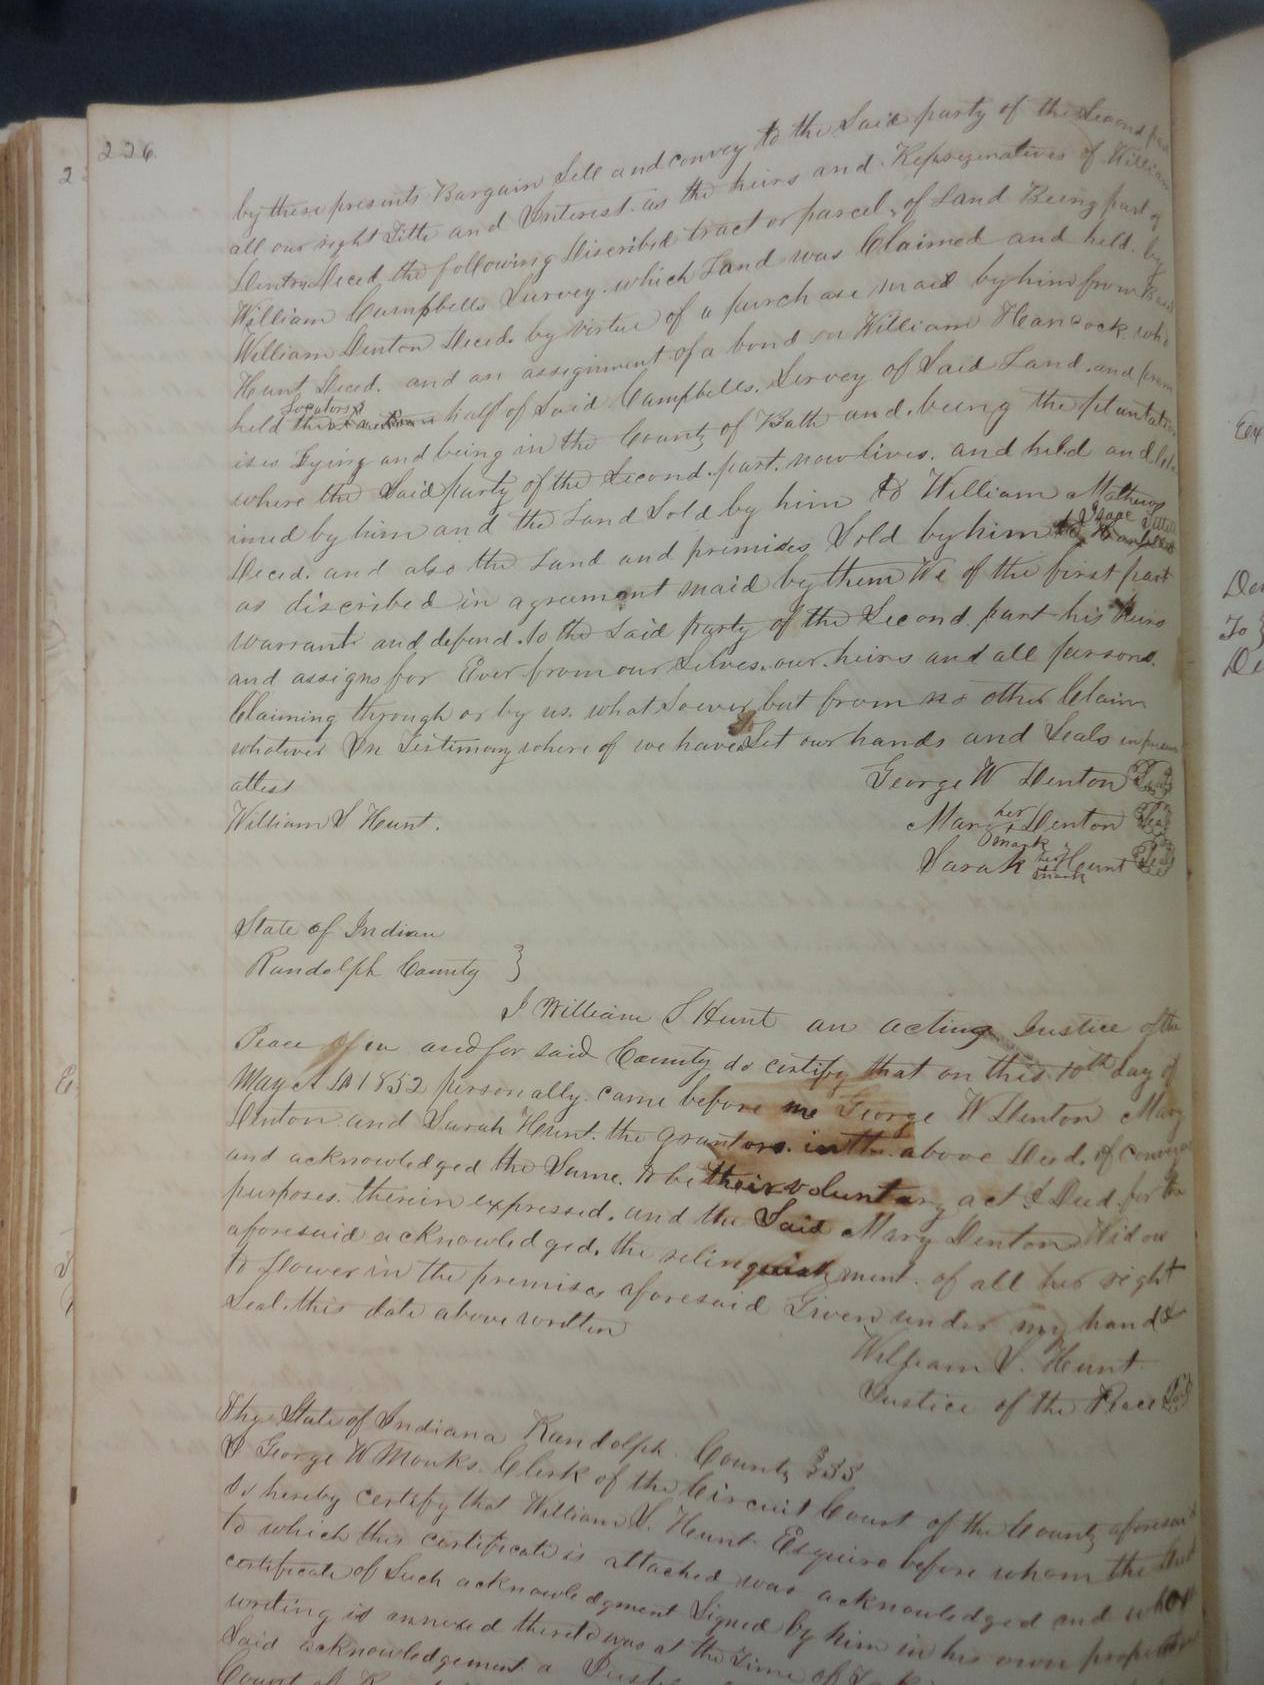 226.
by these presents Bargain Sell and convey to the Said party of the Second
all our right Title and Interest as the heirs and Represenatives of William
Denton Deced the following Discribed tract or parcel of Land Being part of
William Campbells Survey. which Land was Claimed and held by
William Denton Deced. by virtue of a purchase maid by him from
Hunt Deced. and an assignment of a bond on William Hancock who
held Locators half of Said Campbells. Survey of Said Land. and prem
ises Lying and being in the County of Bath and. being the plantation
where the Said party of the Second. part. now lives. and held and cla
imed by him and the Land Sold by him to William Mathews
Deced. and also the Land and premises Sold by him to Isaac
as discribed in agreement maid by them We of the first part
warrant and defend. to the Said party of the Second part his heirs
and assigns for Ever from our Selves. our. heirs and all persons.
Claiming through or by us. what Soever but from no other Claim
whatever In Testimony where of we have Set our hands and Seals
attest
George W Denton Seal
William S Hunt.
Mary her mark Denton Seal
Sarah her mark Hunt Seal
State of Indian
Randolph County }
I William S Hunt an acting Justice of the
Peace of in and for said County do certify that on this 10th day of
May AD 1852 personally came before me George W Denton Mary
Denton and Sarah Hunt. the grantors. in the above Deed. of
and acknowledged the Same. to be their voluntary act & Deed for the
purposes. therein expressed. and the Said Mary Denton Widow
aforesaid acknowledged. the relinquishment. of all her right
to Dower in the premises aforesaid Given under my hand &
Seal. this date above written
William S. Hunt.
Justice of the Peace Seal
The State of Indiana Randolph County
I George W Monks. Clerk of the Circuit Court of the County aforesaid
do hereby certify that William S. Hunt Esquire before whom the
to which this certificate is attached was acknowledged and whose
certificate of Such acknowledgment Signed by him in his own proper
writing is annexed thereto was at the Time of
Said acknowledgement a
Court of
2
To }